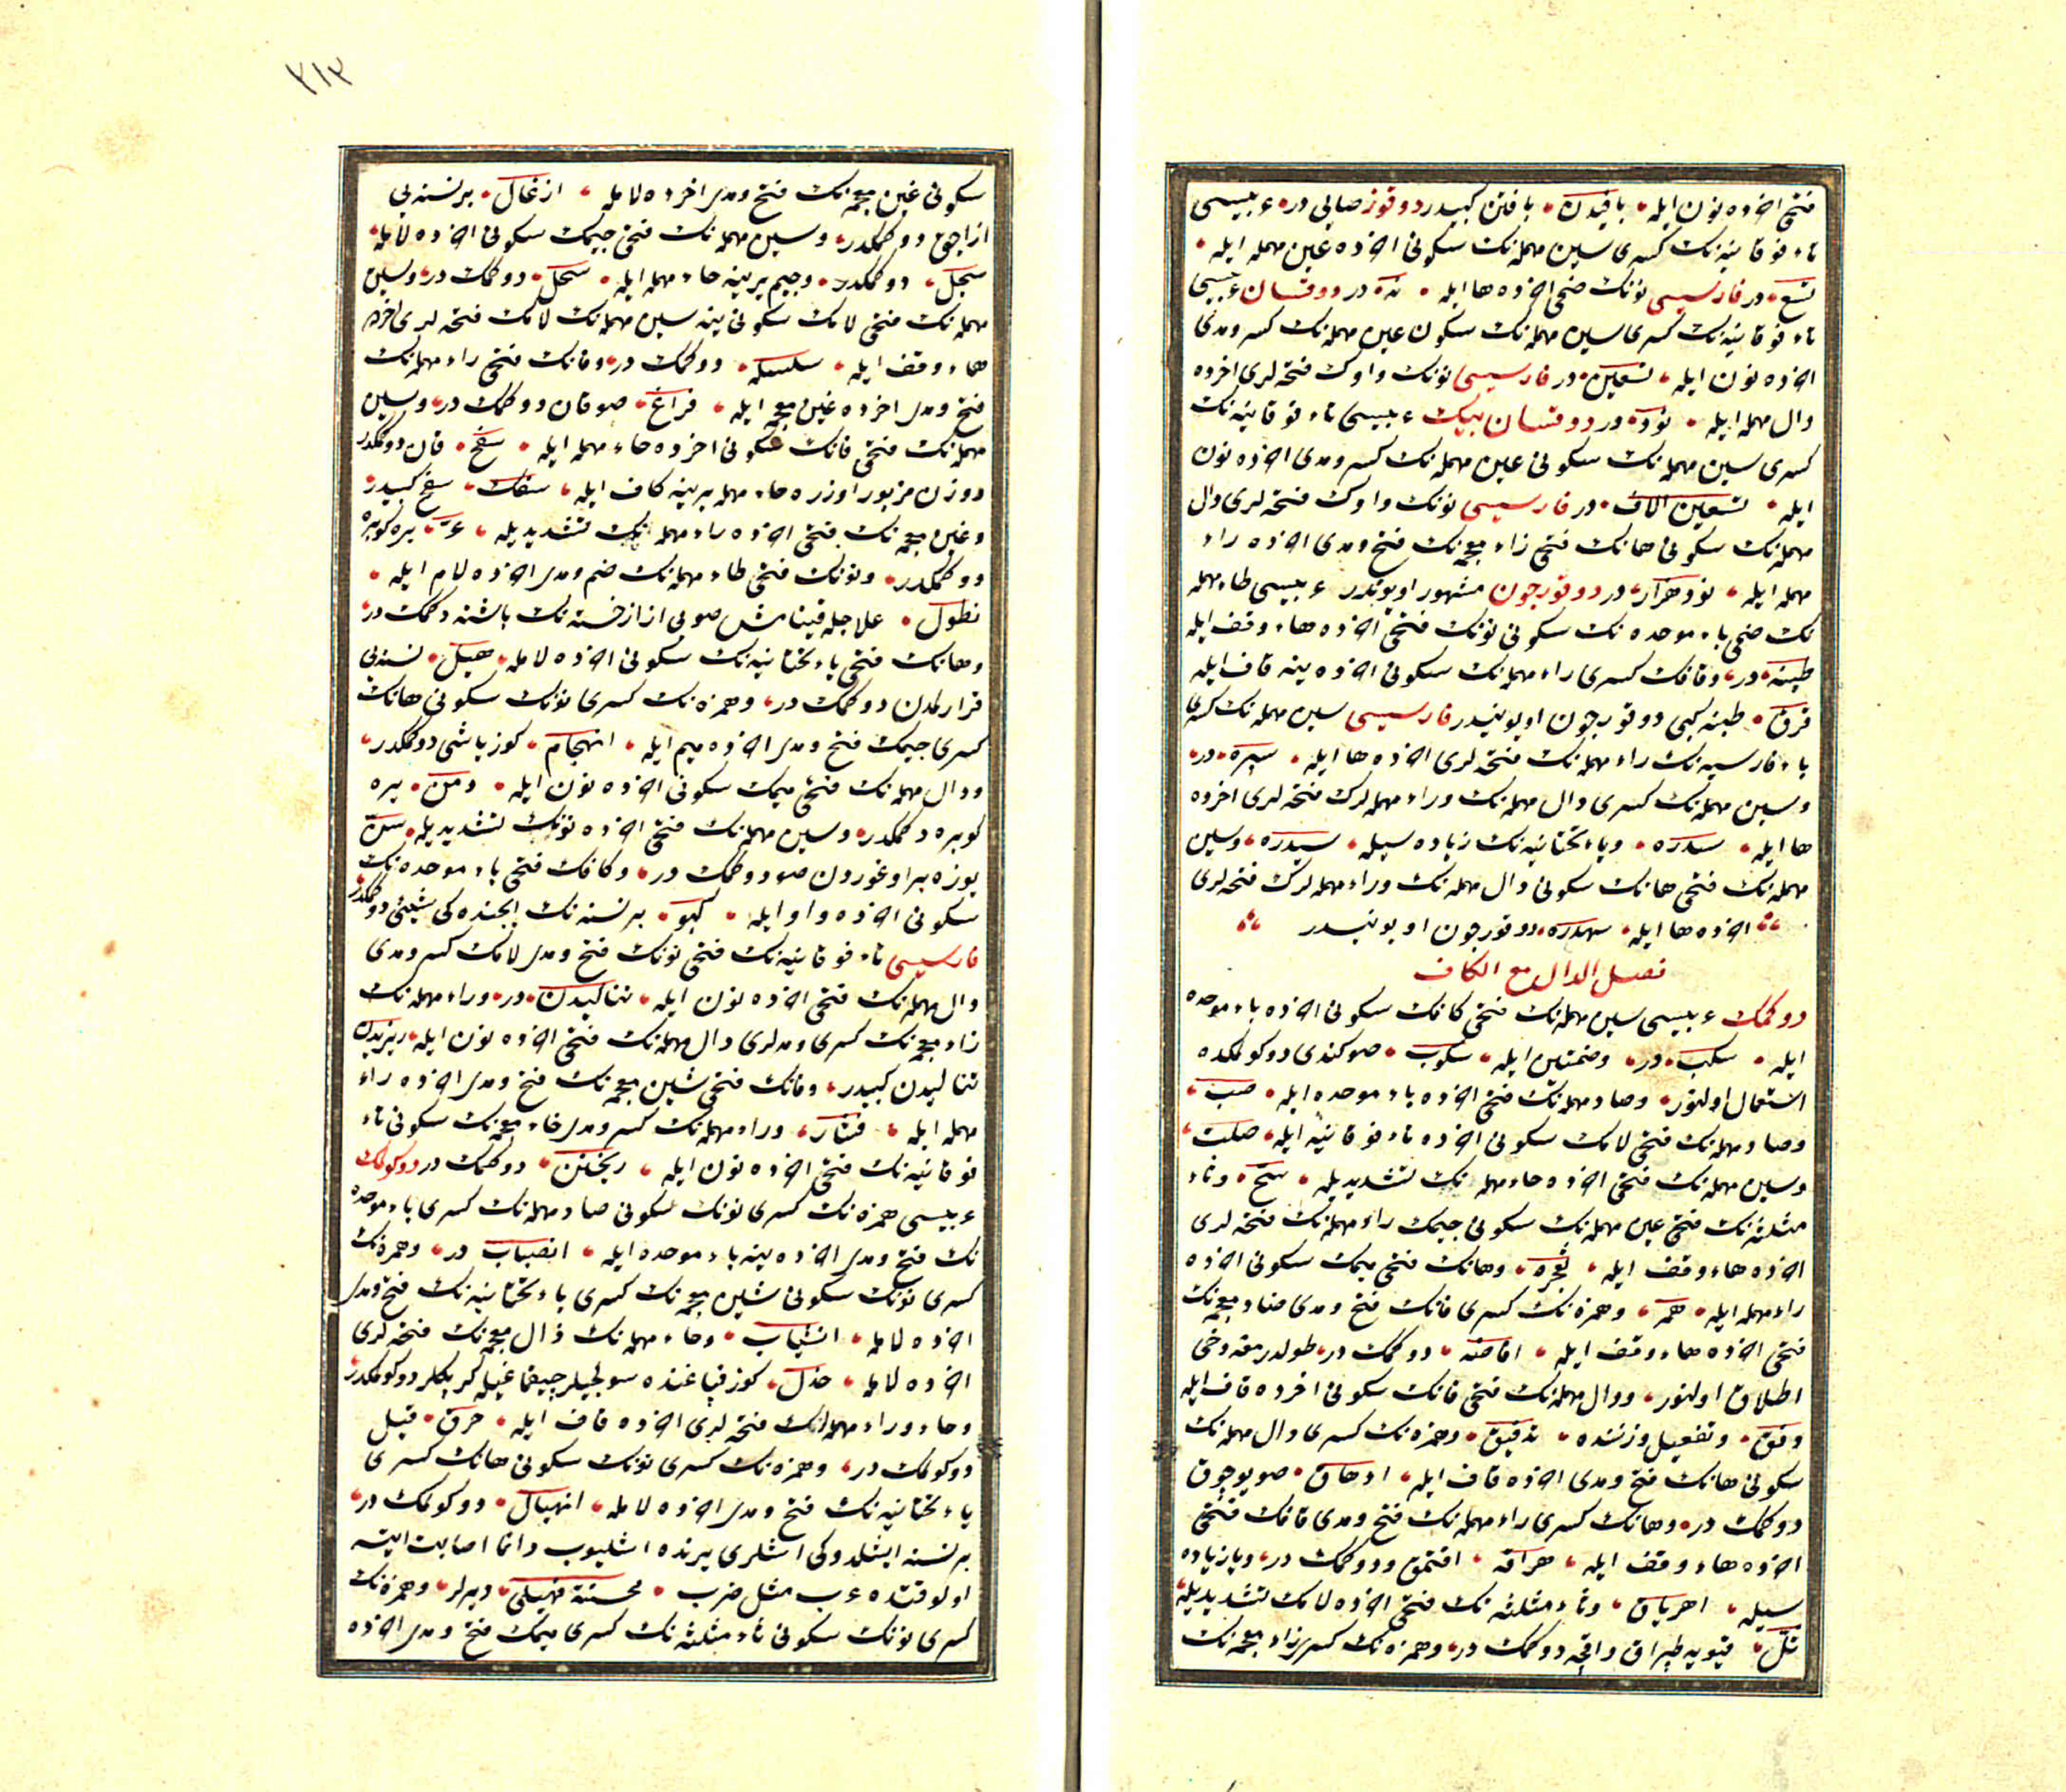 فتحی اخرده نون ایله بافیدن بافتن کبیدر دوقوز صایی در عربیسی
تاء فوقانیه نک کسری سین مهمله نک سکونی اخرده عین مهمله ایله
تسع در فارسیسی نونک ضمی اخرده ها ایله نه در دوقسان عربیسی
تاء فوقانیه نک کسری سین مهمله نک سکون عین مهمله نک کسر ومدی
اخرده نون ایله تسعین در فارسیسی نونک واوک فتحه لری اخرده
دال مهمله ایله نود در دوقسان بیک عربیسی تاء فوقانیه نک
کسری سین مهمله نک سکونی عین مهمله نک کسر ومدی اخرده نون
ایله تسعین الاف در فارسیسی نونک واوک فتحه لری دال
مهمله نک سکونی هانک فتحی زاء معجمه نک فتح ومدی اخرده راء
مهمله ایله نود هزار در دوقورجون مشهور اویوندر عربیسی طاء مهمله
نک ضمی باء موحده نک سکونی نونک فتحی اخرده هاء وقف ایله
طبنه در وقافک کسری راء مهمله نک سکونی اخرده ینه قاف ایله
قرق طبنه کبی دوقورجون اویونیدر فارسیسی سین مهمله نک کسری
باء فارسیه نک راء مهمله نک فتحه لری اخرده ها ایله سپره در
وسین مهمله نک کسری دال مهمله نک وراء مهمله لرک فتحه لری اخرده
ها ایله سدره ویاء تحتانیه نک زیاده سیله سیدره وسین
مهمله نک فتحی هانک سکونی دال مهمله نک وراء مهمله لرک فتحه لری
اخرده ها ایله سهدره دوقورجون اویونیدر
فصل الدال مع الکاف
دوکمک عربیسی سین مهمله نک فتحی کافک سکونی اخرده باء موحده
ایله سکب در وضمتین ایله سکوب صو کندی دوکولمکده
استعمال اولنور وصاد مهمله نک فتحی اخرده باء موحده ایله صب
وصاد مهمله نک فتحی لامک سکونی اخرده تاء فوقانیه ایله صلت
وسین مهمله نک فتحی اخرده حاء مهمله نک تشدیدیله سح وثاء
مثلثه نک فتحی عین مهمله نک سکونی جیمک راء مهمله نک فتحه لری
اخرده هاء وقف ایله ثعجره وهانک فتحی میمک سکونی اخرده
راء مهمله ایله همر وهمزه نک کسری فانک فتح ومدی ضاد معجمه نک
فتحی اخرده هاء وقف ایله افاضه دوکمک در طولدرمقه دخی
اطلاق اولنور ودال مهمله نک فتحی فانک سکونی اخرده قاف ایله
دفق وتفعیل وزننده تدفیق وهمزه نک کسری دال مهمله نک
سکونی هانک فتح ومدی اخرده قاف ایله ادهاق صویی چوق
دوکمک در وهانک کسری راء مهمله نک فتح ومدی قافک فتحی
اخرده هاء وقف ایله هراقه اقتمق ودوکمک در ویا زیاده
سیله اهریاق وثاء مثلثه نک فتحی اخرده لامک تشدیدیله
ثل قیویه طپراق واقچه دوکمک در وهمزه نک کسری زاء معجمه نک
٢١٣
سکونی غین معجمه نک فتح ومدی اخرده لامله ازغال بر نسنه یی
ازاجق دوکمکدر وسین مهمله نک فتحی جیمک سکونی اخرده لامله
سجل دوکمکدر وجیم یرینه حاء مهمله ایله سحل دوکمک در وسین
مهمله نک فتحی لامک سکونی ینه سین مهمله نک لامک فتحه لری اخرده
هاء وقف ایله سلسله دوکمک در وفانک فتحی راء مهمله نک
فتح ومدی اخرده غین معجمه ایله فراغ صو وقان دوکمک در وسین
مهمله نک فتحی فانک سکونی اخرده حاء مهمله ایله سفح قان دوکمکدر
ووزن مزبور اوزره حاء مهمله یرینه کاف ایله سفک سفح کبیدر
وغین معجمه نک فتحی اخرده راء مهمله نک تشدیدیله غر یره کوبره
دوکمکدر ونونک فتحی طاء مهمله نک ضم ومدی اخرده لام ایله
نطول علاجله قینامش صویی از از خسته نک باشنه دوکمک در
وهانک فتحی یاء تحتانیه نک سکونی اخرده لامله هیل نسنه یی
قرارلمدن دوکمک در وهمزه نک کسری نونک سکونی هانک
کسری جیمک فتح ومدی اخرده میم ایله انهجام کوز یاشی دوکمکدر
ودال مهمله نک فتحی میمک سکونی اخرده نون ایله دمن یره
کوبره دوکمکدر وسین مهمله نک فتحی اخرده نونک تشدیدیله سن
یوزه بر اوغوردن صو دوکمک در وکافک فتحی باء موحده نک
سکونی اخرده واو ایله کبو بر نسنه نک ایچنده کی شیئی دوکمکدر
فارسیسی تاء فوقانیه نک فتحی نونک فتح ومدی لامک کسر ومدی
دال مهمله نک فتحی اخرده نون ایله تنالیدن در وراء مهمله نک
زاء معجمه نک کسری ومدلری دال مهمله نک فتحی اخرده نون ایله ریزیدن
تنالیدن کبیدر وفانک فتحی شین معجمه نک فتح ومدی اخرده راء
مهمله ایله فشار وراء مهمله نک کسر ومدی خاء معجمه نک سکونی تاء
فوقانیه نک فتحی اخرده نون ایله ریختن دوکمک در دوکولمک
عربیسی همزه نک کسری نونک سکونی صاد مهمله نک کسری باء موحده
نک فتح ومدی اخرده ینه باء موحده ایله انصباب در وهمزه نک
کسری نونک سکونی شین معجمه نک کسری یاء تحتانیه نک فتح ومدی
اخرده لامله وحاء مهمله نک ذال معجمه نک فتحه لری
اخرده لامله حذل کوز قپاغنده کرپکلر دوکولمکدر
وحاء وراء مهمله نک فتحه لری اخرده قاف ایله حرق قیل
دوکولمک در وهمزه نک کسری نونک سکونی هانک کسری
یاء تحتانیه نک فتح ومدی اخرده لامله انهیال دوکولمک در
بر نسنه ایشلدوکی ایشلری یرنده اشلیوب دائما اصابت ایتسه
اولوقتده عرب مثل ضرب محسنة فهیلی دیرلر وهمزه نک
کسری نونک سکونی ثاء مثلثه نک کسری میمک فتح ومدی اخرده